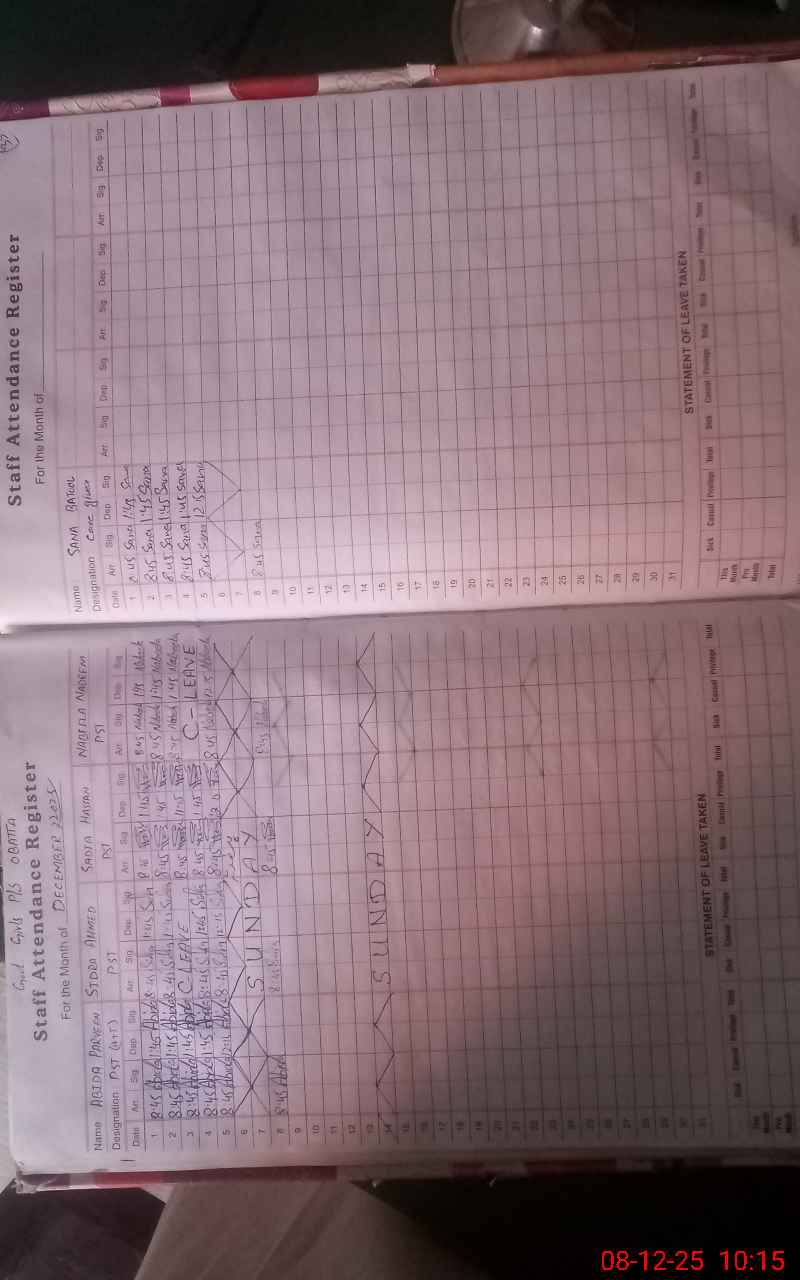 Govt Girls P/S OBATTA
Staff Attendance Register
For the Month of DECEMBER 2025
Name ABIDA PARVEEN SIDRA AHMED SADIA HASSAN NABEELA NADEEM
Designation PST PST PST PST
Date Arr. Sig. Dep. Sig. Arr. Sig. Dep. Sig. Arr. Sig. Dep. Sig. Arr. Sig. Dep. Sig.
1 8:45 Abida 1:45 Abida 8:45 Sidra 1:45 Sidra 8:45 1:45 8:45 Nabeela 1:45 Nabeela
2 8:45 Abida 1:45 Abida 8:45 Sidra 1:45 Sidra 8:45 1:45 8:45 Nabeela 1:45 Nabeela
3 8:45 Abida 1:45 Abida C LEAVE 8:45 1:45 8:45 Nabeela 1:45 Nabeela
4 8:45 Abida 1:45 Abida 8:45 Sidra 1:45 Sidra 8:45 1:45 C - LEAVE
5 8:45 Abida 12:15 Abida 8:45 Sidra 12:15 Sidra 8:45 12:15 8:45 Nabeela 12:15 Nabeela
6
7 SUNDAY
8 8:45 Abida 8:45 Sidra 8:45 8:45 Nabeela
9
10
11
12
13
14 SUNDAY
15
16
17
18
19
20
21
22
23
24
25
26
27
28
29
30
31
STATEMENT OF LEAVE TAKEN
Sick Casual Privilege Total Sick Casual Privilege Total Sick Casual Privilege Total Sick Casual Privilege Total
This Month
Pre Month
Staff Attendance Register
For the Month of
Name SANA BATOOL
Designation Care giver
Date Arr. Sig. Dep. Sig. Arr. Sig. Dep. Sig. Arr. Sig. Dep. Sig. Arr. Sig. Dep. Sig.
1 8:45 Sana 1:45 Sana
2 8:45 Sana 1:45 Sana
3 8:45 Sana 1:45 Sana
4 8:45 Sana 1:45 Sana
5 8:45 Sana 12:15 Sana
6
7
8 8:45 Sana
9
10
11
12
13
14
15
16
17
18
19
20
21
22
23
24
25
26
27
28
29
30
31
STATEMENT OF LEAVE TAKEN
Sick Casual Privilege Total Sick Casual Privilege Total Sick Casual Privilege Total Sick Casual Privilege Total
This Month
Pre Month
Total
08-12-25 10:15